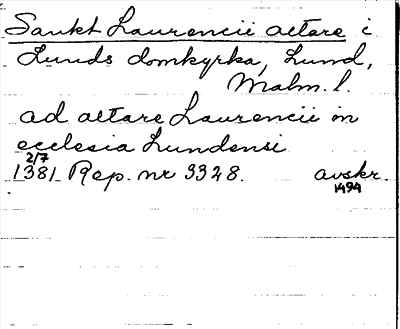 Sankt Laurencii altare i
Lunds domkyrka, Lund,
Malm. l.
ad altare Laurencii in
ecclesia Lundensi
2/7
1381 Rep. nr 3328. avskr.
1494